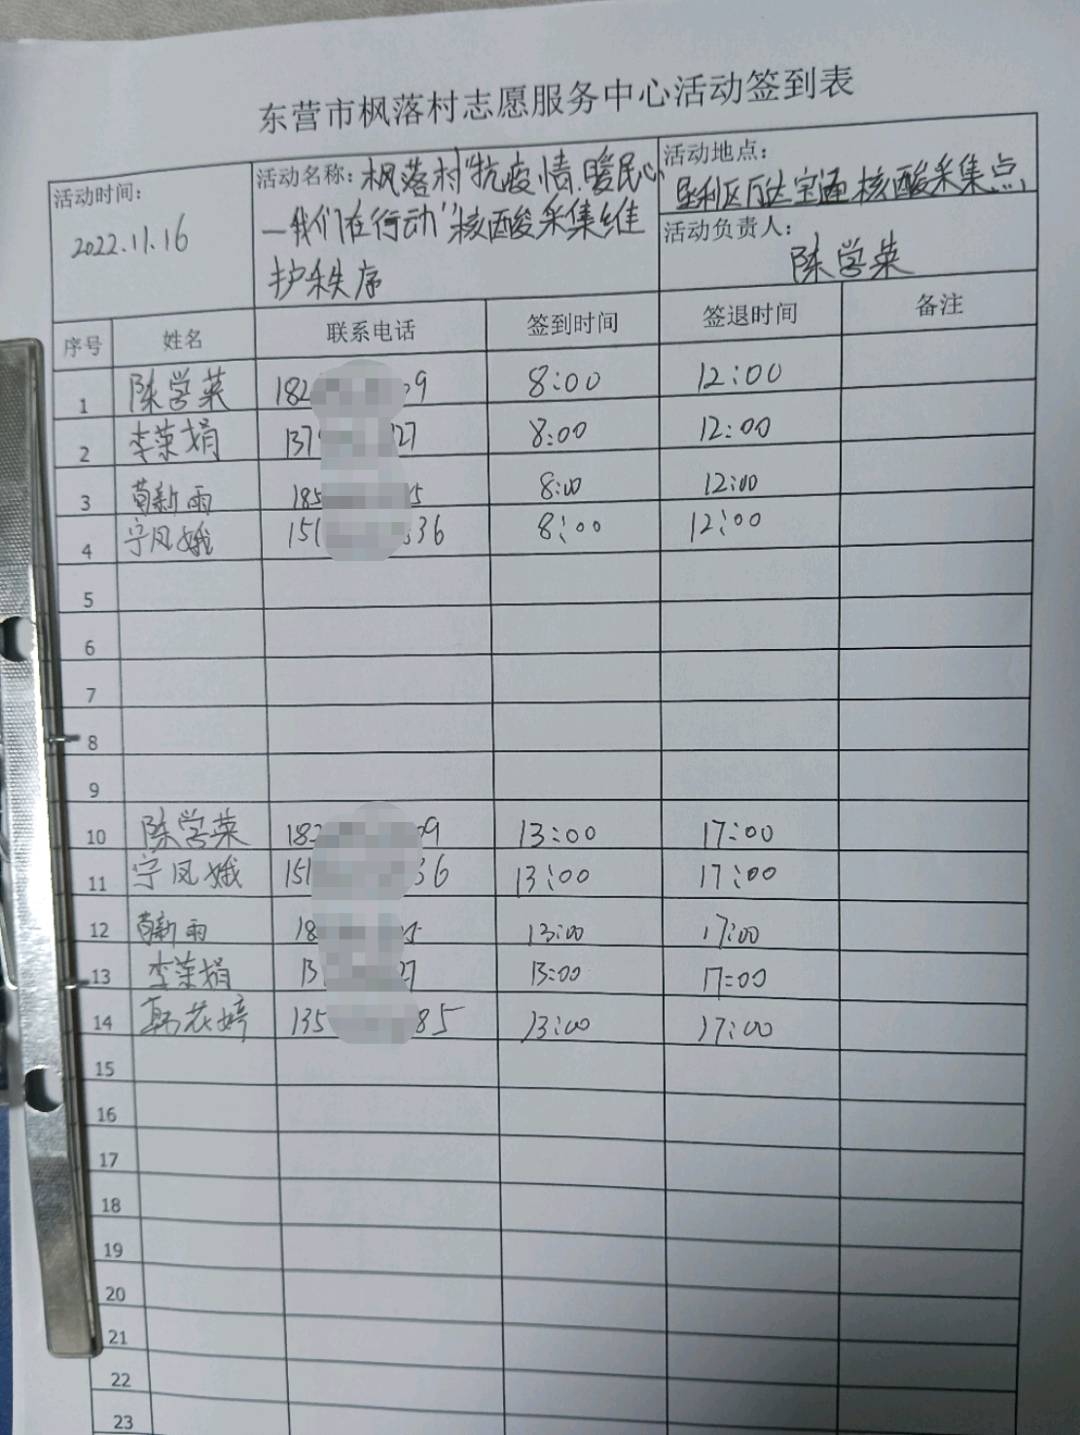 东营市枫落村志愿服务中心活动签到表
活动时间：
2022.11.16
活动名称：枫落村"抗疫情.暖民心
—我们在行动"核酸采集维
护秩序
活动地点：
垦利区万达宝通核酸采集点
活动负责人：
陈学荣
序号 姓名 联系电话 签到时间 签退时间 备注
1 陈学荣 182 09 8:00 12:00
2 李荣娟 137 27 8:00 12:00
3 荀新雨 185 5 8:00 12:00
4 宁凤娥 151 36 8:00 12:00
5
6
7
8
9
10 陈学荣 182 09 13:00 17:00
11 宁凤娥 151 36 13:00 17:00
12 荀新雨 18 5 13:00 17:00
13 李荣娟 13 27 13:00 17:00
14 韩花婷 135 85 13:00 17:00
15
16
17
18
19
20
21
22
23